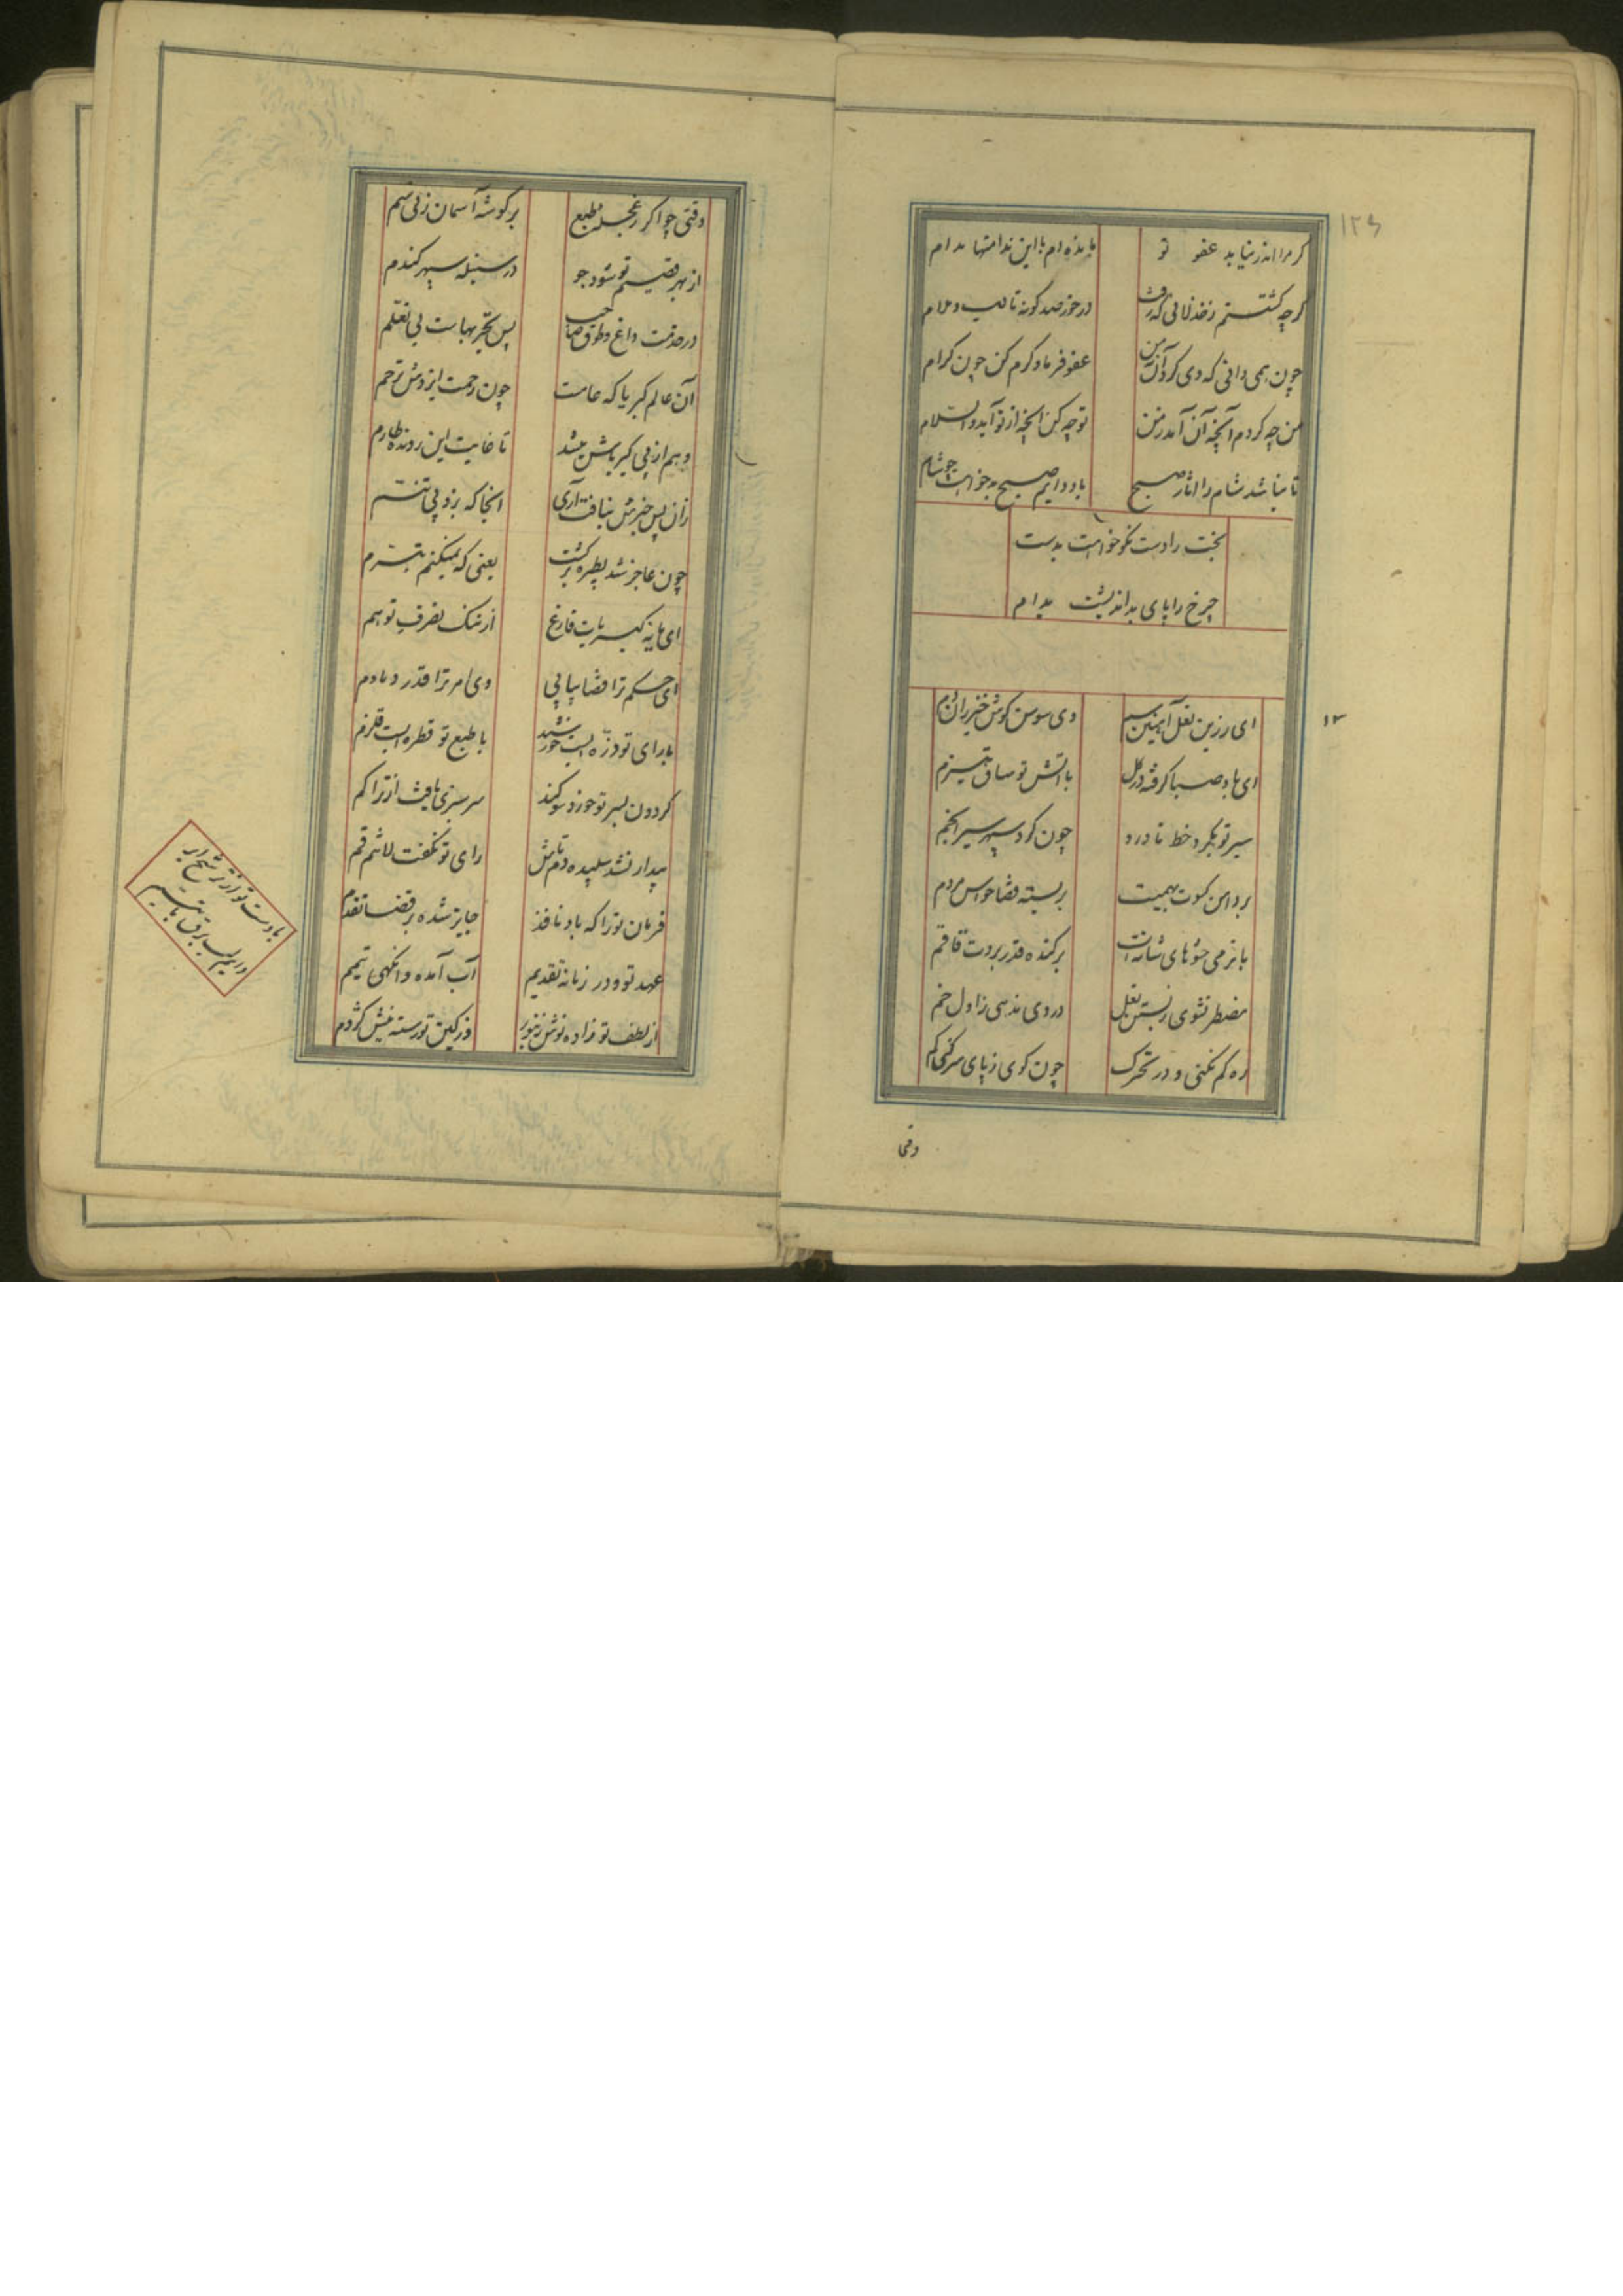 ۱۲۶
گر مرا اندر نیابد عفو تو
مانده‌ام با این ندامتها مدام
گرچه گشتستم ز خذلانی که رفت
در خور صد گونه تأدیب و ملام
چون همی دانی که دی کردآن نه من
عفو فرما و کرم کن چون کرام
من چه کردم آنچه آن آمد ز من
تو چه کن آنچه از تو آید والسلام
تا نباشد شام را آثار صبح
باد دایم صبح بدخواهت چو شام
بخت را دست نکوخواهت بدست
چرخ را پای بداندیشت بدام
۱۳
ای زرین نعل آهنین سم
وی سوسن گوش خیزران دم
ای باد صبا گرفته در گل
با آتش تو ساق هیزم
سیر تو بگرد خط ناورد
چون گرد سپهر سیر انجم
بر دامن کسوت بهیمیت
بربسته قضا حواس مردم
با نرمی حشوهای شانه‌ات
برکنده قدر بروت قاقم
مضطر نشوی ز بستن نعل
در وی ندهی ز اول خم
ره گم نکنی و در تحرک
چون گوی ز پای سر کنی گم
وقتی
وقتی چو اگر ز عجل طبع
بر گوشه آسمان زنی سم
از بهر قضیم تو شود جو
در سنبله سپهر گندم
در خدمت داغ و طوق صاحب
پس تجربهاست بی تعلم
آن عالم کبریا که عامست
چون رحمت ایزدش ترحم
وهم از پی کبریاش میشد
تا غایت این رونده طارم
زان پس خبرش نیافت آری
آنجا که برد پی تنسم
چون عاجز شد بطیره برگشت
یعنی که نمیکنم تبرم
ای پایه کبریات فارغ
از ننگ تصرف توهم
ای حکم ترا قضا پیاپی
وی امر ترا قدر دمادم
با رای تو ذره ایست خورشید
با طبع تو قطره ایست قلزم
گردون بسر تو خورد سوگند
سرسبزی یافت از تراکم
بیدار نشد سپیده‌دم تاش
رای تو نگفت لاتنم قم
فرمان ترا که باد نافذ
جایز شده بر قضا تقدم
عهد تو و در زمانه تقدیم
آب آمده وانگهی تیمم
از لطف تو زاده نوش زنبور
وز کین تو رسته نیش کژدم
با دست تو از ترشح ابر
دایم لب برق با تبسم